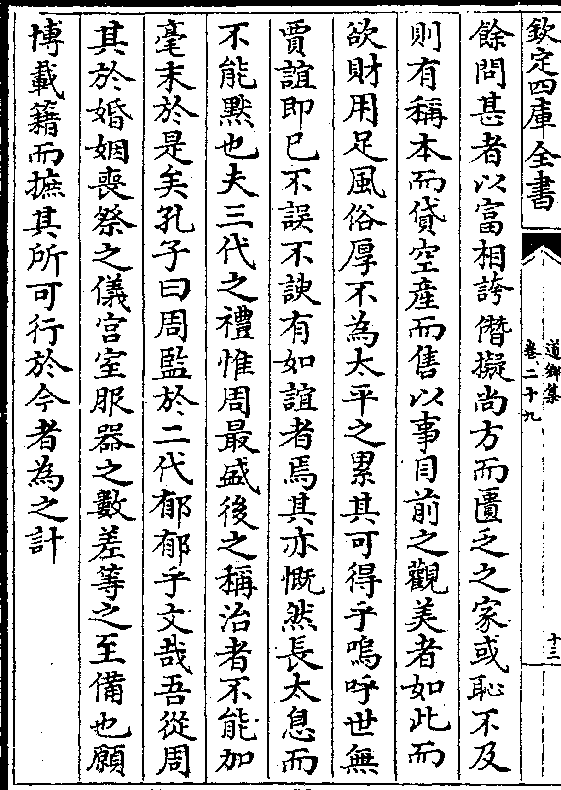 欽定四庫全書
道鄉集
卷二十九
十三
餘問甚者以富相誇僭擬尚方而匱乏之家或恥不及
則有稱本而貸空産而售以事目前之觀美者如此而
欲財用足風俗厚不為太平之累其可得乎嗚呼世無
賈誼即已不誤不諛有如誼者焉其亦慨然長太息而
不能黙也夫三代之禮惟周最盛後之稱治者不能加
毫末於是矣孔子曰周監於二代郁郁乎文哉吾從周
其於婚姻喪祭之儀宫室服器之數差等之至備也願
博載籍而摭其所可行於今者為之計